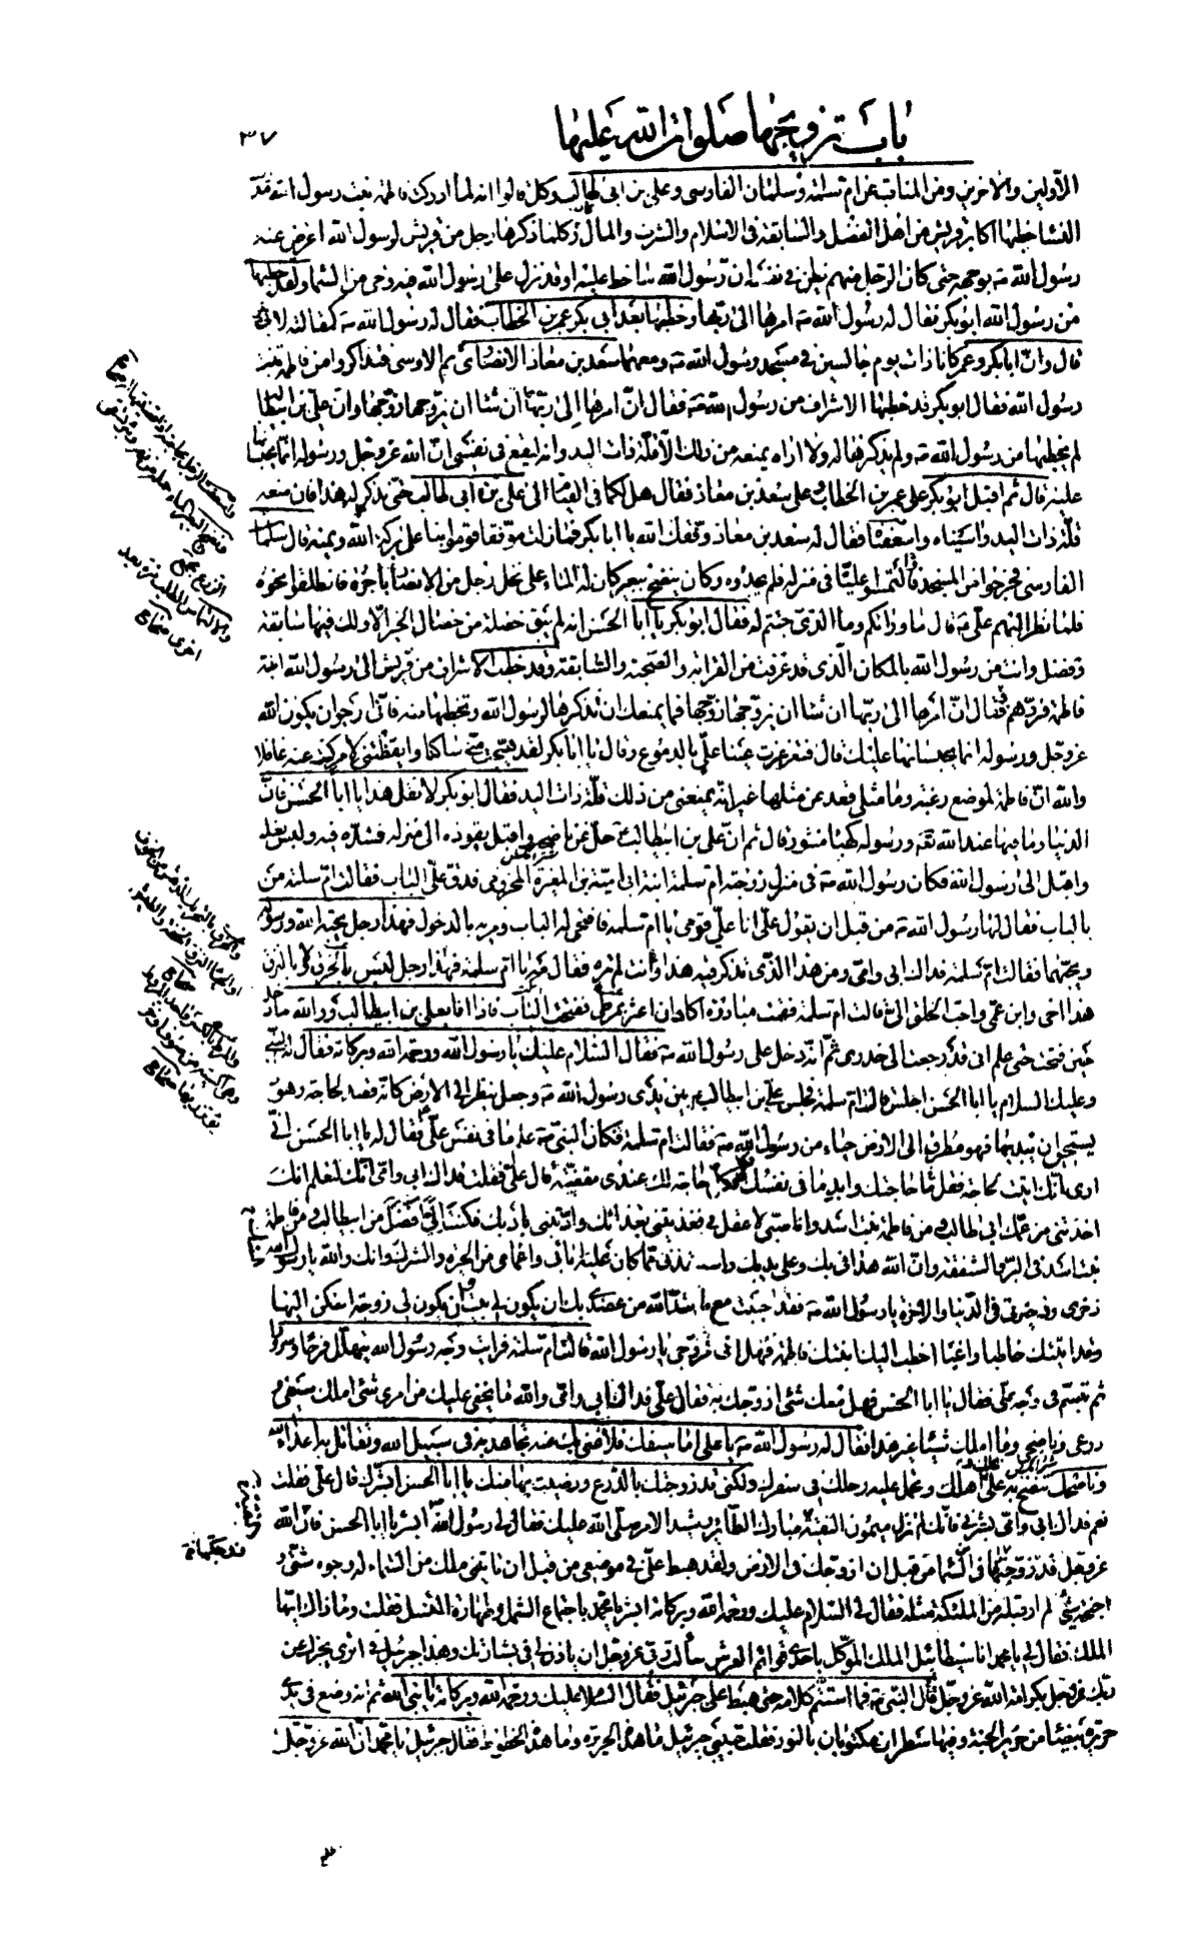 باب تزويجها صلوات الله عليها
٣٧
الأولين والآخرين ومن المناقب عن ام سلمة وسلمان الفارسى وعلى بن ابى طالب وكل قالوا انه لما ادركت فاطمة بنت رسول الله
النساء خطبها اكابر قريش من اهل الفضل والسابقة فى الاسلام والشرف والمال وكلما ذكرها رجل من قريش لرسول الله اعرض عنه
رسول الله بوجهه حتى كان الرجل منهم يظن فى نفسه ان رسول الله ساخط عليه او قد نزل على رسول الله فيه وحى من السماء ولقد خطبها
من رسول الله ابو بكر فقال له رسول الله امرها الى ربها وخطبها بعد ابى بكر عمر بن الخطاب فقال له رسول الله كمقالته لابى بكر
قال وان ابا بكر وعمر كانا ذات يوم جالسين فى مسجد رسول الله ومعهما سعد بن معاذ الانصارى ثم الاوسى فتذاكروا من فاطمة بنت
رسول الله فقال ابو بكر قد خطبها الاشراف من رسول الله فقال ان امرها الى ربها ان شاء ان يزوجها زوجها وان على بن ابيطالب
لم يخطبها من رسول الله ولم يذكرها له ولا اراه يمنعه من ذلك الا قلة ذات اليد وانه ليقع فى نفسى ان الله عز وجل ورسوله انما يحبسانها
عليه قال ثم اقبل ابو بكر على عمر بن الخطاب وعلى سعد بن معاذ فقال هل لكما فى القيام الى على بن ابى طالب حتى نذكر له هذا فان منعه
قلة ذات اليد واسيناه واسعفناه فقال له سعد بن معاذ وفقك الله يا ابا بكر فما زلت موفقا قوموا بنا على بركة الله وبمنه قال سلمان
الفارسى فخرجوا من المسجد والتمسوا عليا فى منزله فلم يجدوه وكان ينضح ببعير كان له الماء على نخل رجل من الانصار باجرة فانطلقوا نحوه
فلما نظر اليهم على قال ما وراءكم وما الذى جئتم له فقال ابو بكر يا ابا الحسن انه لم يبق خصلة من خصال الخير الا ولك فيها سابقة
وفضل وانت من رسول الله بالمكان الذى قد عرفت من القرابة والصحبة والسابقة وقد خطب الاشراف من قريش الى رسول الله ابنته
فاطمة فردهم فقال ان امرها الى ربها ان شاء ان يزوجها زوجها فما يمنعك ان تذكرها لرسول الله وتخطبها منه فانى ارجو ان يكون الله
عز وجل ورسوله انما يحبسانها عليك قال فتغرغرت عينا على بالدموع وقال يا ابا بكر لقد هيجت منى ساكنا وايقظتنى لامر كنت عنه غافلا
والله ان فاطمة لموضع رغبة وما مثلى قعد عن مثلها غير انه يمنعنى من ذلك قلة ذات اليد فقال ابو بكر لا تقل هذا يا ابا الحسن فان
الدنيا وما فيها عند الله ورسوله كهباء منثور قال ثم ان على بن ابيطالب حل عن ناضحه واقبل يقوده الى منزله فشده فيه ولبس نعله
واقبل الى رسول الله فكان رسول الله فى منزل زوجته ام سلمة ابنة ابى امية بن المغيرة المخزومى فدق على الباب فقالت ام سلمة من
بالباب فقال لها رسول الله من قبل ان يقول على انا على قومى يا ام سلمة فافتحى له الباب ومريه بالدخول فهذا رجل يحبه الله ورسوله
ويحبهما فقالت ام سلمة فداك ابى وامى ومن هذا الذى تذكر فيه هذا وانت لم تره فقال مه يا ام سلمة فهذا رجل ليس بالخرق ولا بالنزق
هذا اخى وابن عمى واحب الخلق الى قالت ام سلمة فقمت مبادرة اكاد ان اعثر بمرطى ففتحت الباب فاذا انا بعلى بن ابيطالب ووالله ما دخل
حين فتحت حتى علم انى قد رجعت الى خدرى ثم انه دخل على رسول الله فقال السلام عليك يا رسول الله ورحمة الله وبركاته فقال له النبى
وعليك السلام يا ابا الحسن اجلس قالت ام سلمة فجلس على بن ابيطالب بين يدى رسول الله وجعل ينظر الى الارض كانه قصد لحاجة وهو
يستحيى ان يبديها فهو مطرق الى الارض حياء من رسول الله فقالت ام سلمة فكان النبى علم ما فى نفس على فقال له يا ابا الحسن انى
ارى انك اتيت لحاجة فقل ما حاجتك وابد ما فى نفسك فكل حاجة لك عندى مقضية قال على فقلت فداك ابى وامى انك لتعلم انك
اخذتنى من عمك ابى طالب ومن فاطمة بنت اسد وانا صبى لا عقل لى فغذيتنى بغذائك وادبتنى بادبك فكنت الى افضل من ابيطالب ومن فاطمة
بنت اسد فى البر والشفقة وان الله هدانى بك وعلى يديك واستنقذنى مما كان عليه ابائى واعمامى من الحيرة والشرك وانك والله يا رسول الله
ذخرى وذخيرتى فى الدنيا والاخرة يا رسول الله فقد احببت مع ما شد الله من عضدى بك ان يكون لى بيت وان تكون لى زوجة اسكن اليها
وقد اتيتك خاطبا راغبا اخطب اليك ابنتك فاطمة فهل انت مزوجى يا رسول الله قالت ام سلمة فرايت وجه رسول الله يتهلل فرحا وسرورا
ثم تبسم فى وجه على فقال يا ابا الحسن فهل معك شىء ازوجك به فقال على فداك ابى وامى والله ما يخفى عليك من امرى شىء املك سيفى و
درعى وناضحى وما املك شيئا غير هذا فقال له رسول الله يا على اما سيفك فلا غنى بك عنه تجاهد به فى سبيل الله وتقاتل به اعداء الله
وناضحك تنضح به على نخلك واهلك وتحمل عليه رحلك فى سفرك ولكنى قد زوجتك بالدرع ورضيت بها منك يا ابا الحسن ابشرك قال على فقلت
نعم فداك ابى وامى بشرنى فانك لم تزل ميمون النقيبة مبارك الطائر رشيد الامر صلى الله عليك فقال لى رسول الله ابشر يا ابا الحسن فان الله
عز وجل قد زوجكها فى السماء من قبل ان ازوجك فى الارض ولقد هبط على فى موضعى من قبل ان تاتينى ملك من السماء له وجوه شتى و
اجنحة شتى لم ار قبله من الملئكة مثله فقال لى السلام عليك ورحمة الله وبركاته ابشر يا محمد باجتماع الشمل وطهارة النسل فقلت وما ذاك ايها
الملك فقال لى يا محمد انا سيطائيل الملك الموكل باحدى قوائم العرش سالت ربى عز وجل ان ياذن لى فى بشارتك وهذا جبرئيل فى اثرى يخبرك عن
ربك عز وجل بكرامة الله عز وجل قال النبى فما استتم كلامه حتى هبط على جبرئيل فقال السلام عليك ورحمة الله وبركاته يا نبى الله ثم انه وضع فى يدى
حريرة بيضاء من حرير الجنة وفيها سطران مكتوبان بالنور فقلت حبيبى جبرئيل ما هذه الحريرة وما هذه الخطوط فقال جبرئيل يا محمد ان الله عز وجل